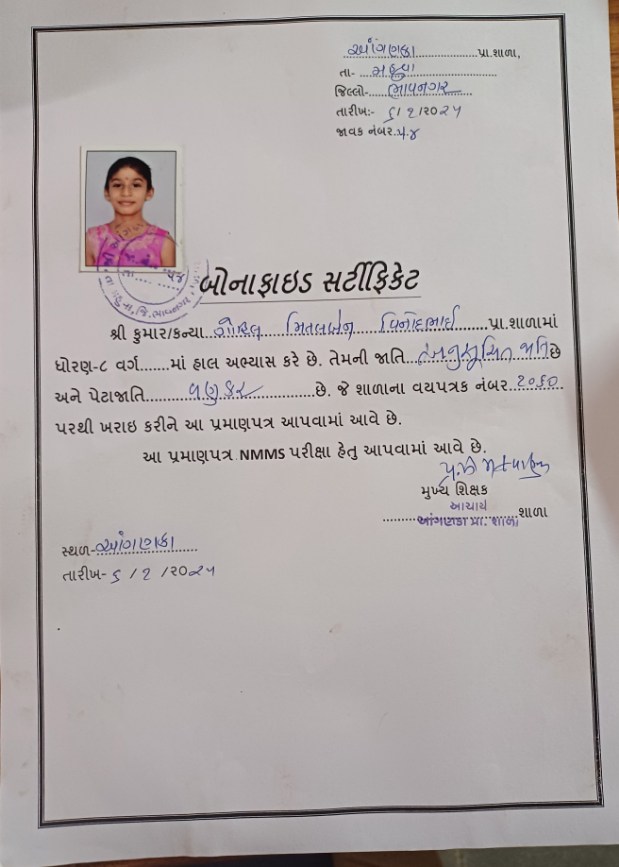 આંગણકા પ્રા.શાળા,
તા- મહુવા
જિલ્લો- ભાવનગર
તારીખ:- ૬/૧/૨૦૨૫
જાવક નંબર.૫૪
બોનાફાઇડ સર્ટીફિકેટ
શ્રી કુમાર/કન્યા ગોહિલ મિતલબેન વિનોદભાઈ પ્રા.શાળામાં
ધોરણ-૮ વર્ગ.......માં હાલ અભ્યાસ કરે છે. તેમની જાતિ અનુસૂચિત જાતિ છે
અને પેટાજાતિ વણકર છે. જે શાળાના વયપત્રક નંબર ૨૦૬૦
પરથી ખરાઇ કરીને આ પ્રમાણપત્ર આપવામાં આવે છે.
આ પ્રમાણપત્ર NMMS પરીક્ષા હેતુ આપવામાં આવે છે.
મુખ્ય શિક્ષક
આચાર્ય
આંગણકા પ્રા. શાળા શાળા
સ્થળ- આંગણકા
તારીખ- ૬/૧/૨૦૨૫